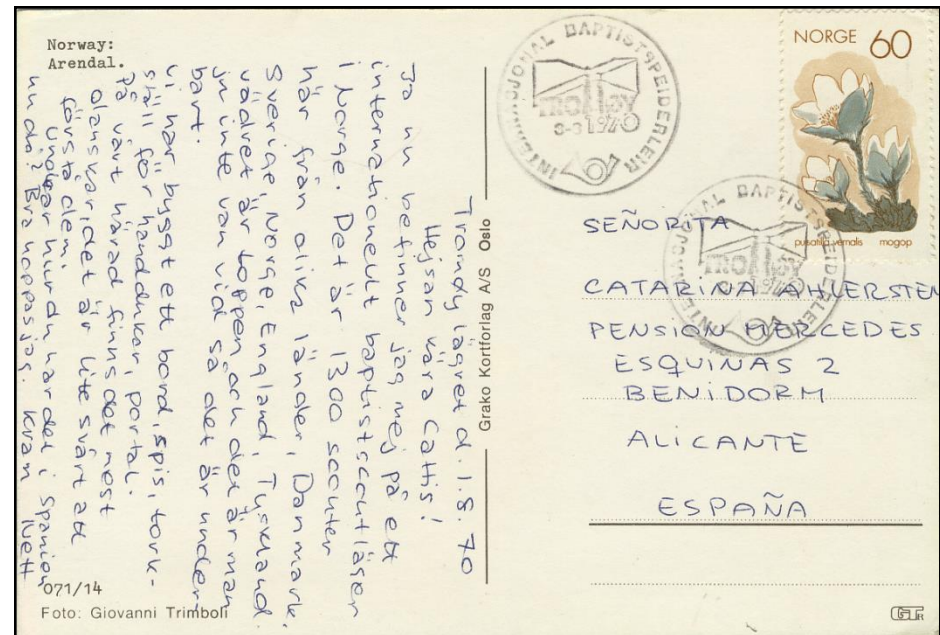 Norway:
Arendal.
Tromöy lägret d. 1.8.70
Hejsan kära Cattis!
Ja nu befinner jag mej på ett
internationellt baptistscoutläger
i Norge. Det är 1300 scouter
här från olika länder, Danmark,
Sverige, Norge, England, Tyskland.
Vädret är toppen och det är man
ju inte van vid så det är under
bart.
Vi har byggt ett bord, spis, tork-
ställ för handdukar, portal.
På vårt härad finns det mest
danskar, det är lite svårt att
förstå dem.
Undrar hur du har det i Spanien
nu då? Bra hoppas jag. Kram
071/14
Foto: Giovanni Trimboli
Grako Kortforlag A/S Oslo
INTERNASJONAL BAPTISTSPEIDERLEIR
TROMØY
1970
NORGE 60
pulsatilla vernalis mogop
INTERNASJONAL BAPTISTSPEIDERLEIR
TROMØY
SEÑORTA
CATARINA AHLERSTEN
PENSION MERCEDES
ESQUINAS 2
BENIDORM
ALICANTE
ESPAÑA